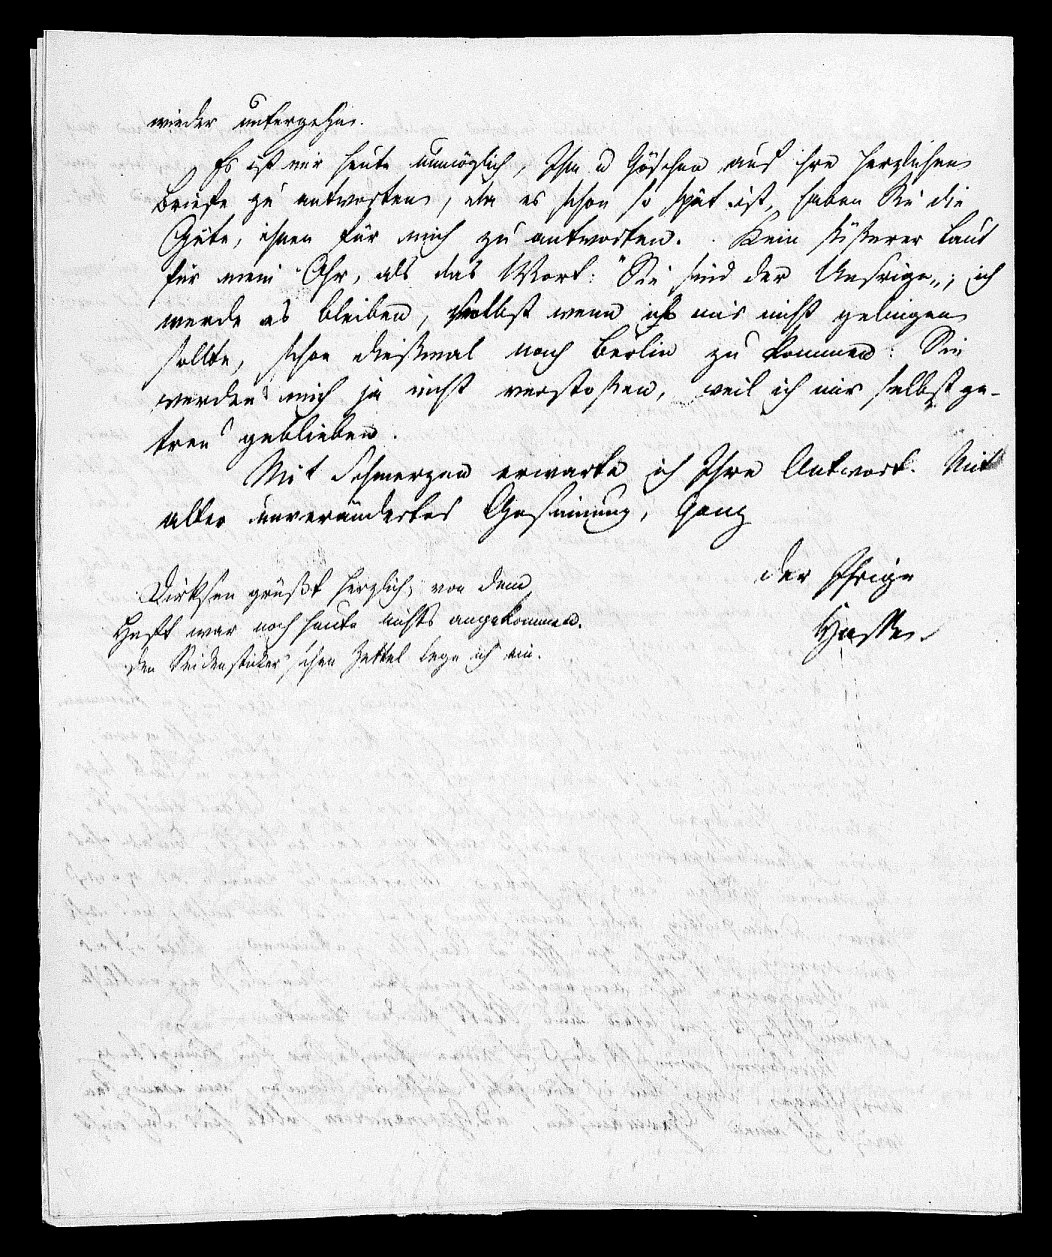 wieder untergehn.
Es ist mir heute unmöglich, Ihm u Göschen auf ihre herzlichen
Briefe zu antworten, da es schon so spät ist, haben Sie die
Güte, ihnen für mich zu antworten. Kein süßerer Laut
für mein Ohr, als das Wort: "Sie sind der Unsrige"; ich
werde es bleiben, selbst wenn es mir nicht gelingen
sollte, schon dießmal nach Berlin zu kommen: Sie
werden mich ja nicht verstoßen, weil ich mir selbst ge-
treu geblieben.
Mit Schmerzen erwarte ich Ihre Antwort. Mit
alter unveränderter Gesinnung, Ganz
der Ihrige
Hasse
Dirksen grüßt herzlich; von dem
Heft war noch heute nichts angekommen.
Den Seidenstücker'schen Zettel lege ich ein.